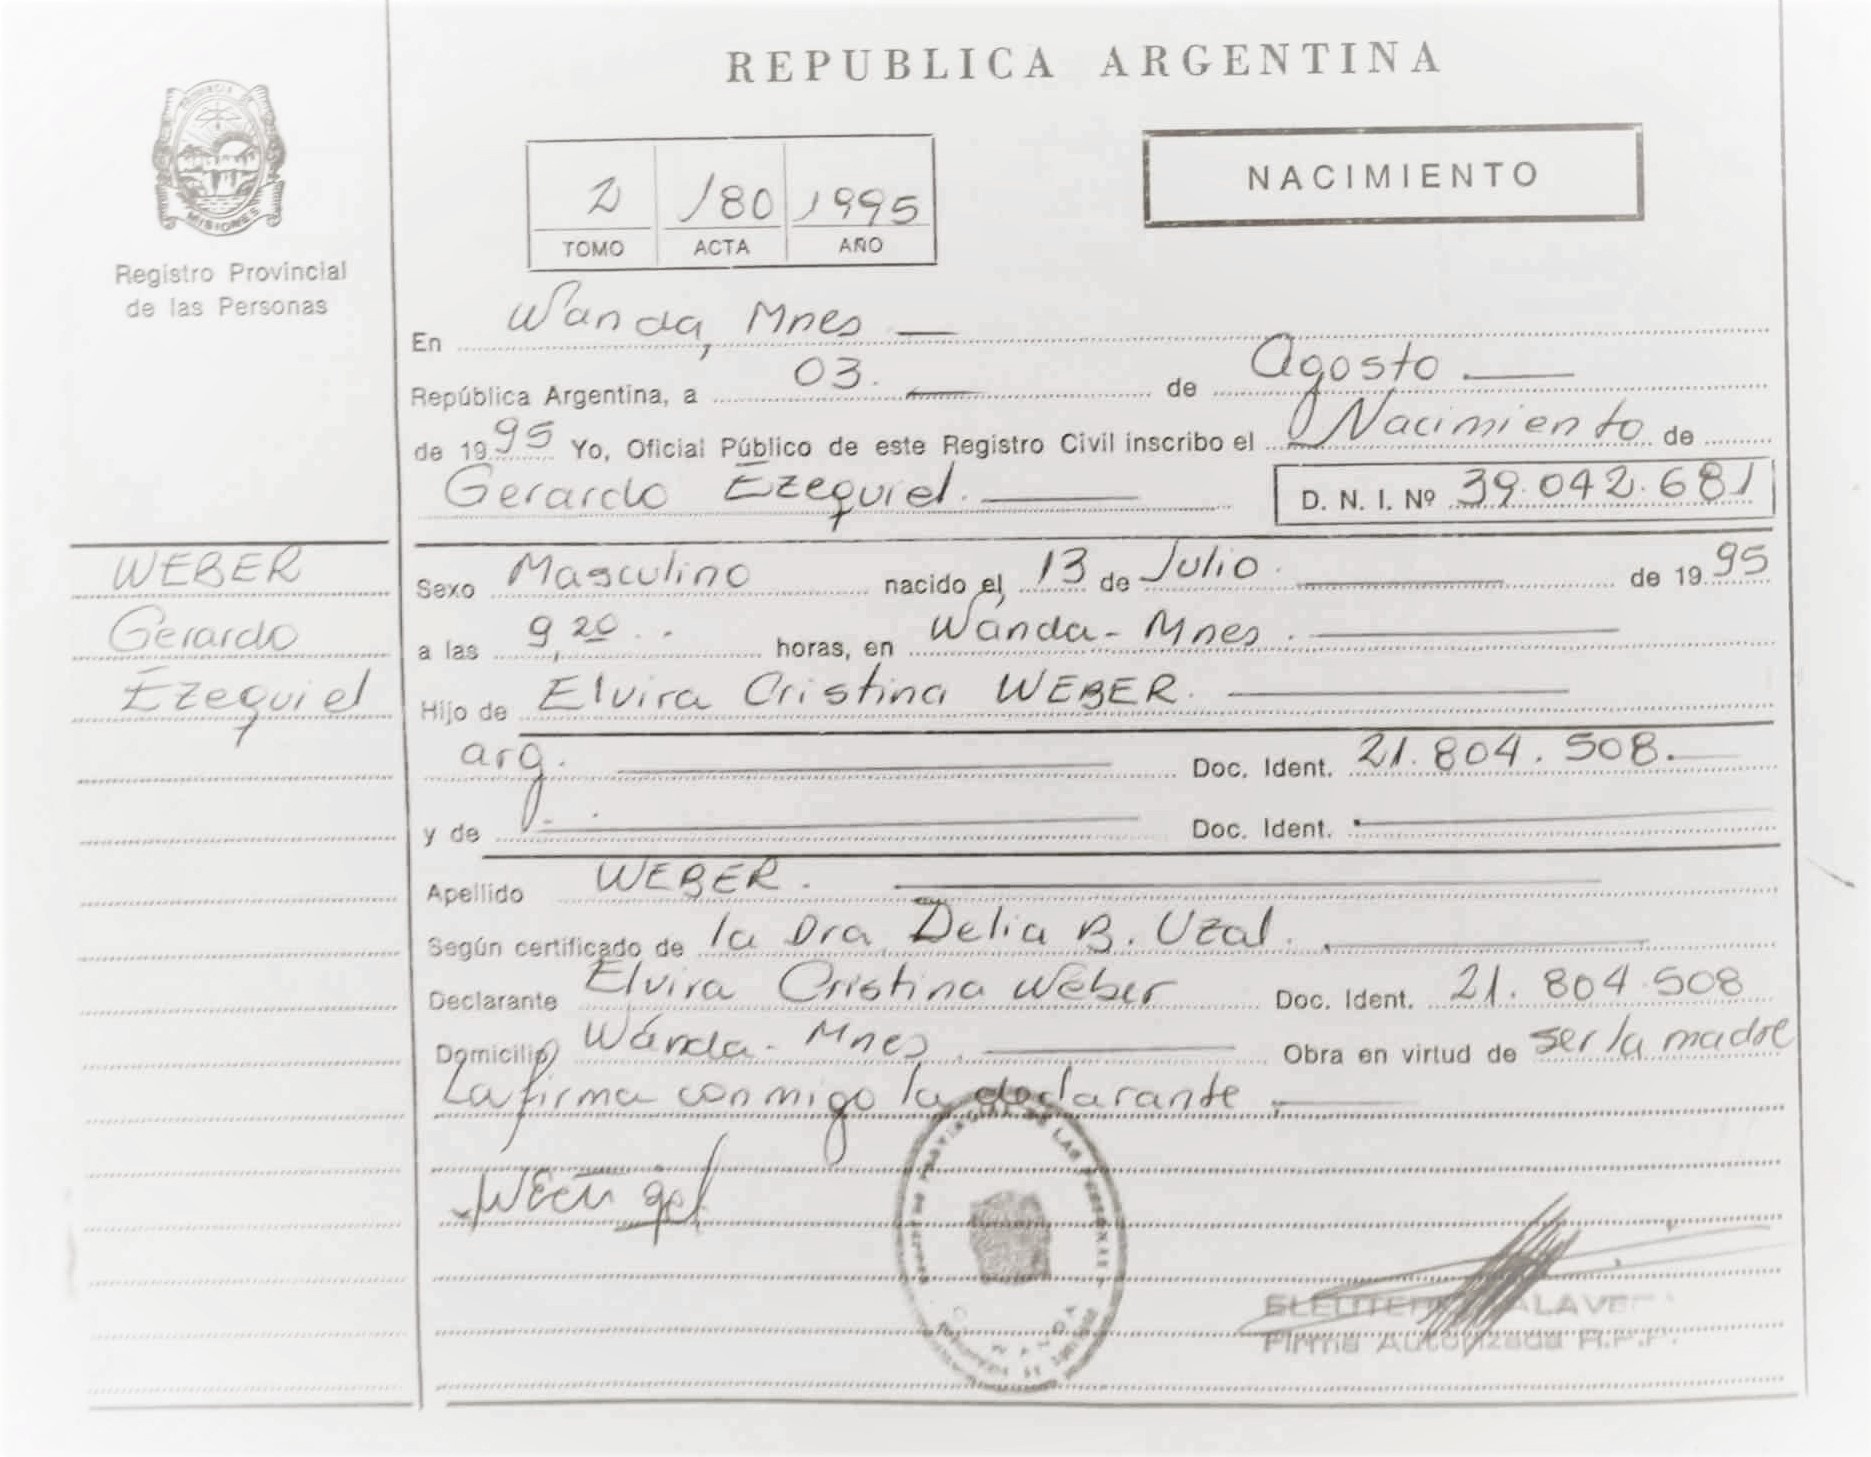 REPUBLICA ARGENTINA
PROVINCIA DE
MISIONES
Registro Provincial
de las Personas
NACIMIENTO
2 180 1995
TOMO ACTA AÑO
En Wanda, Mnes
República Argentina, a 03. de Agosto
de 1995 Yo, Oficial Público de este Registro Civil inscribo el Nacimiento de
Gerardo Ezequiel. D. N. I. Nº 39.042.681
WEBER
Gerardo
Ezequiel
Sexo Masculino nacido el 13 de Julio. de 1995
a las 9,20.. horas, en Wanda - Mnes.
Hijo de Elvira Cristina WEBER.
arg. Doc. Ident. 21.804.508.
y de Doc. Ident.
Apellido WEBER.
Según certificado de la Dra. Delia B. Uzal.
Declarante Elvira Cristina Weber Doc. Ident. 21.804.508
Domicilio Wanda - Mnes. Obra en virtud de ser la madre
La firma conmigo la declarante.
PROVINCIAL DE LAS PERSONAS
WANDA
Firma Autorizada R.P.P.